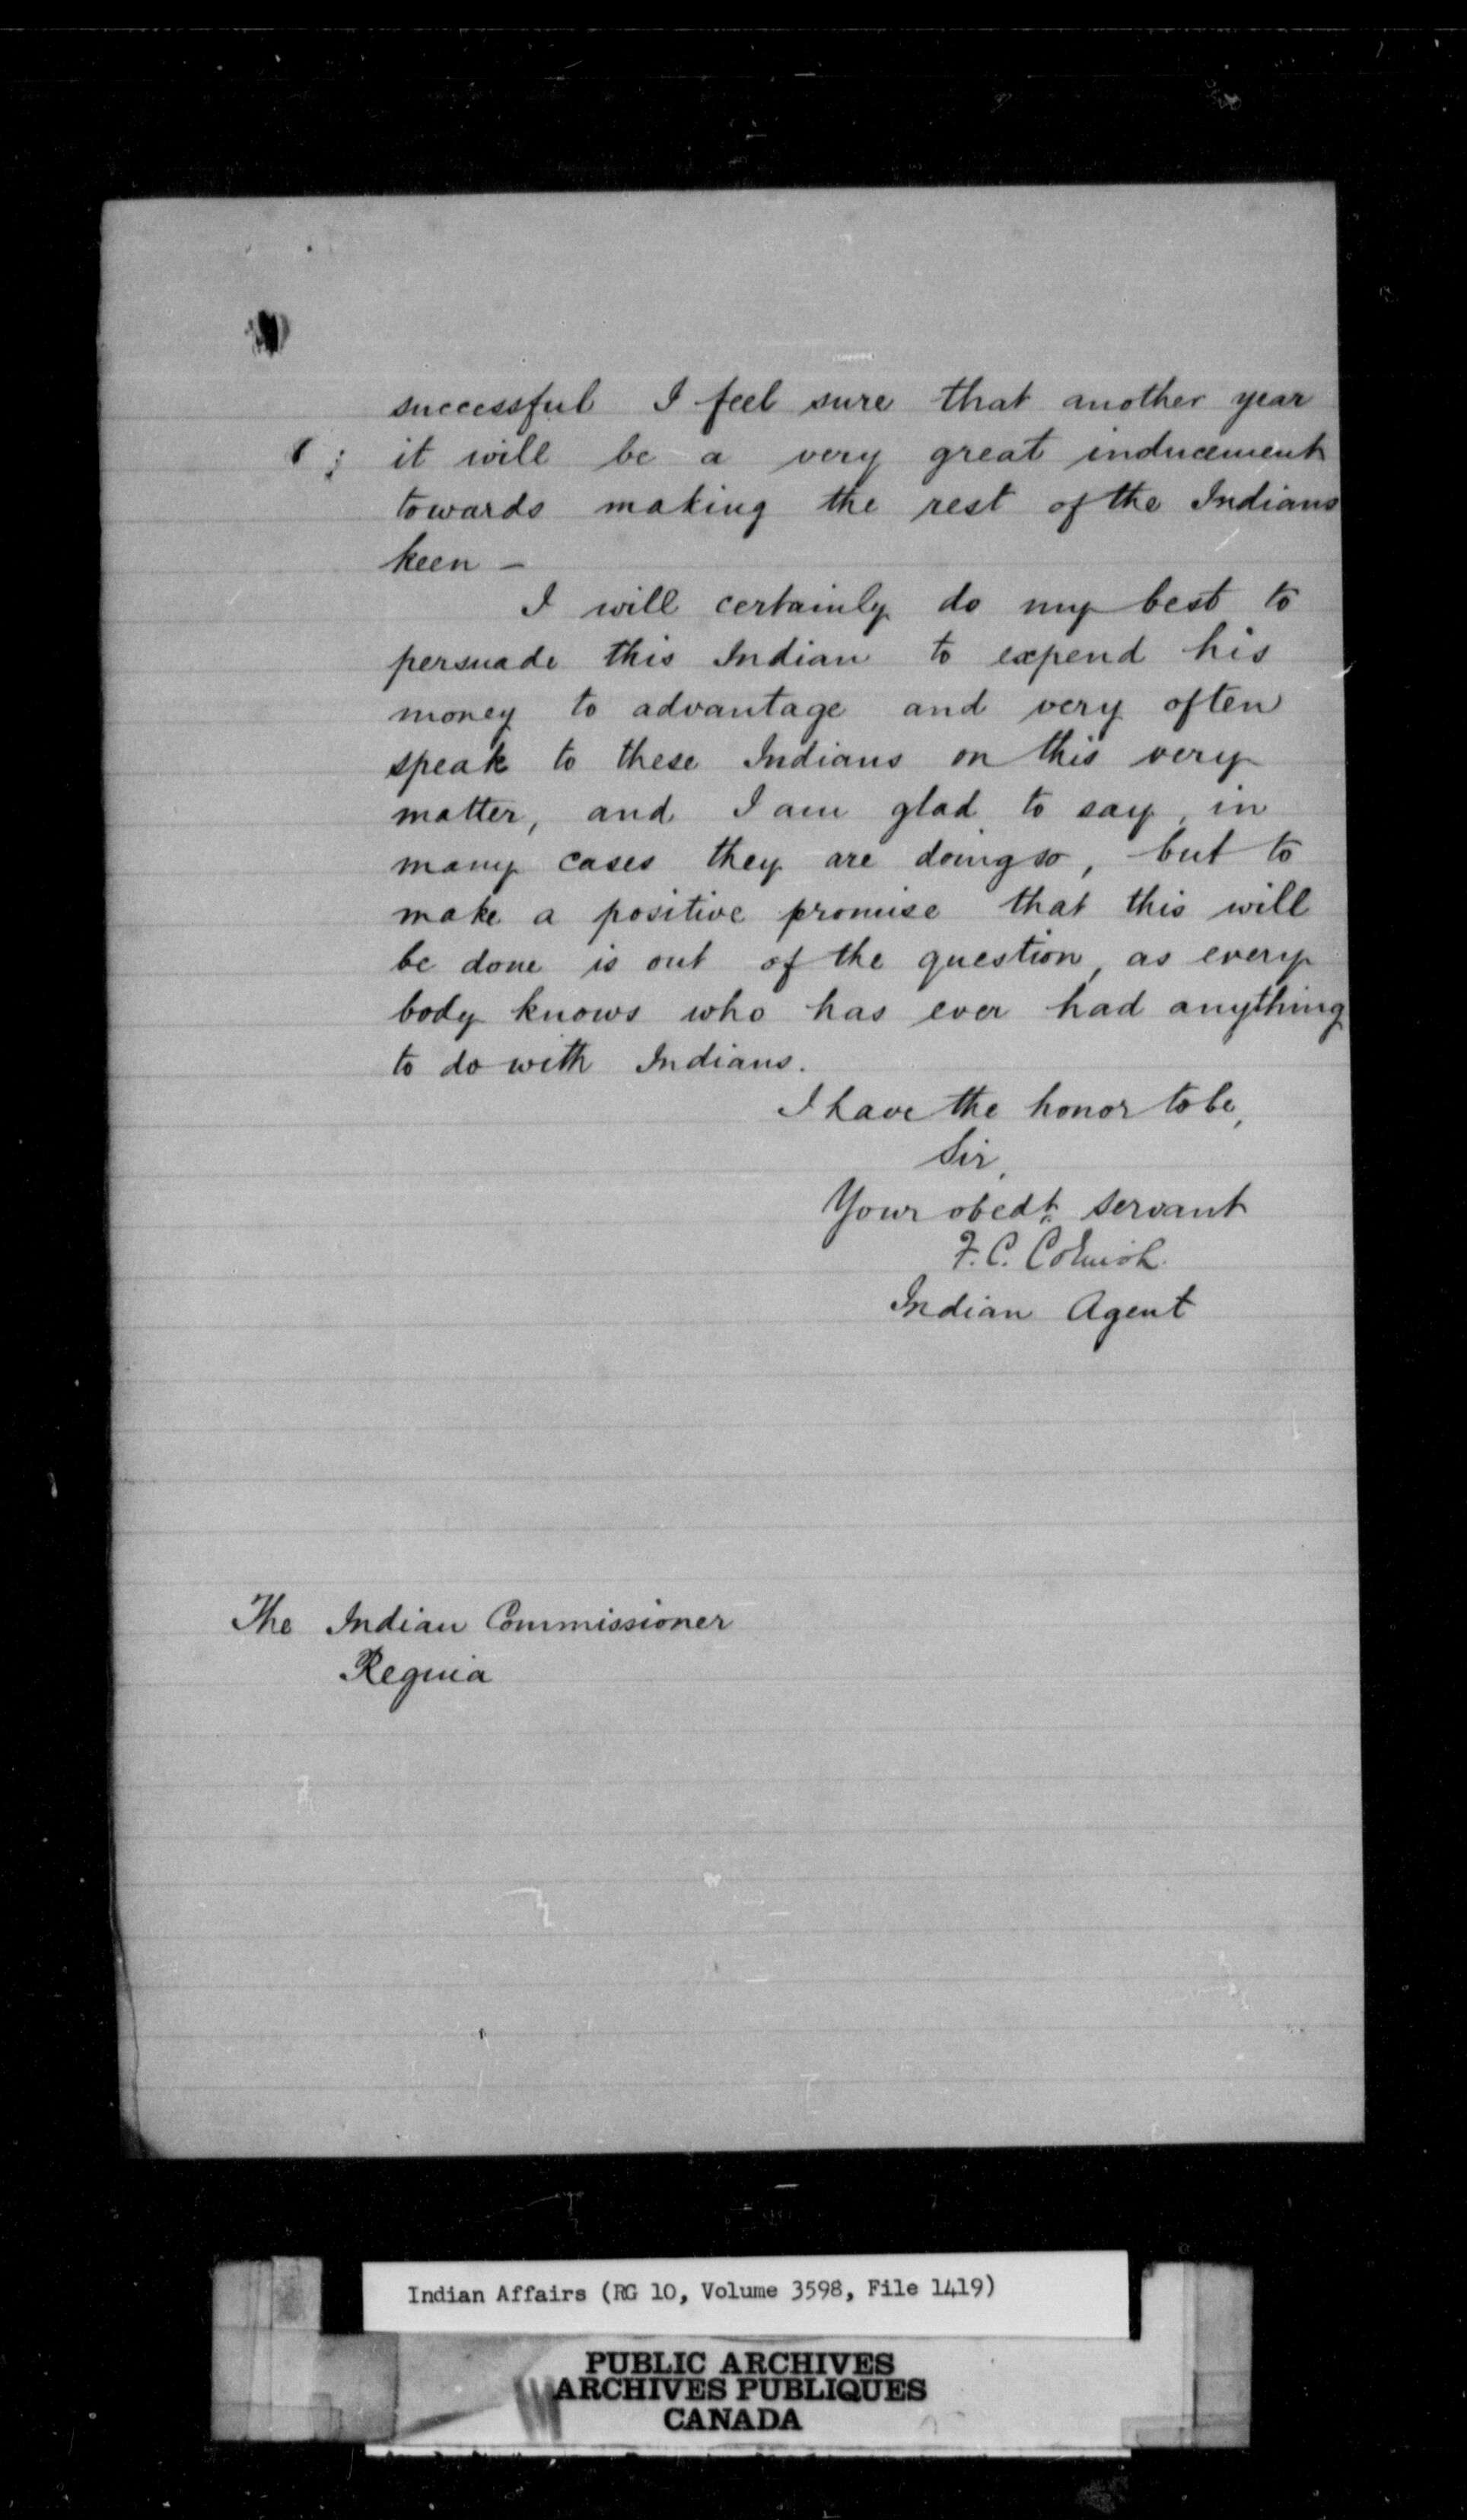 successful I feel sure that another year
it will be a very great inducement
towards making the rest of the Indians
keen –
I will certainly do my best to
persuade this Indian to expend his
money to advantage and very often
speak to these Indians on this very
matter, and I am glad to say, in
many cases they are doing so, but to
make a positive promise that this will
be done is out of the question, as every
body knows who has ever had anything
to do with Indians.
I have the honor to be,
Sir,
Your obedt. servant
F. C. Cornish
Indian Agent
The Indian Commissioner
Regina
Indian Affairs (RG 10, Volume 3598, File 1419)
PUBLIC ARCHIVES
ARCHIVES PUBLIQUES
CANADA